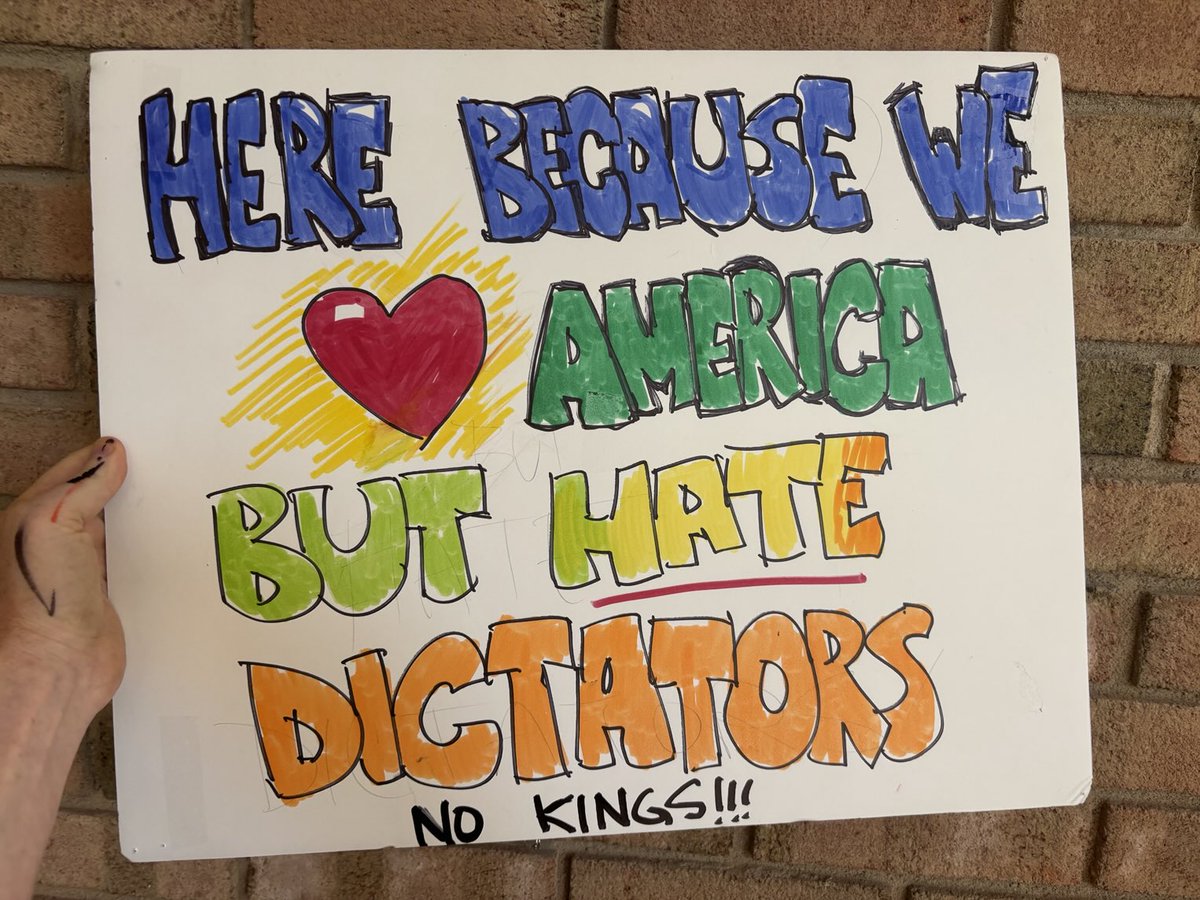 HERE BECAUSE WE
AMERICA
BUT HATE
DICTATORS
NO KINGS!!!